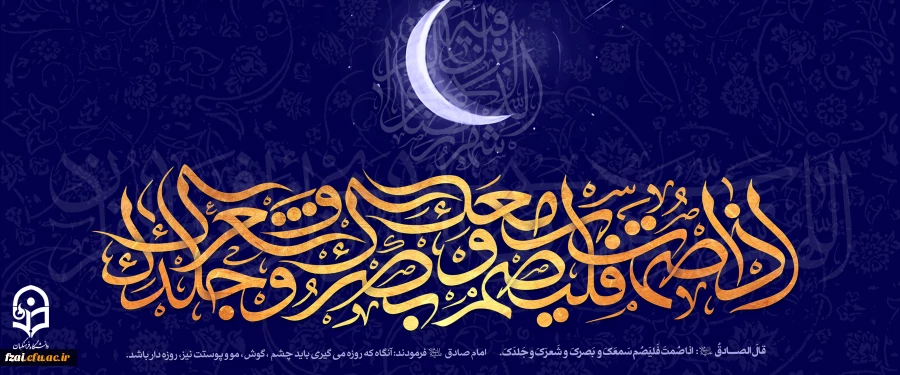 اذا صمت فلیصم سمعک و بصرک و شعرک و جلدک
قالَ الصــادقُ: اذا صُمتَ فَليَصُم سَمعَكَ و بَصركَ و شَعركَ و جَلدَكَ.
امام صادق فرمودند: آنگاه که روزه می گیری باید چشم ، گوش ، مو و پوستت نیز، روزه دار باشد.
دانشگاه فرهنگیان
fzai.cfu.ac.ir